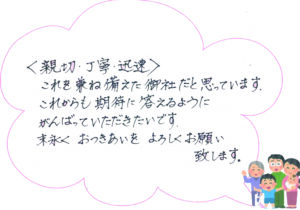 <親切・丁寧・迅速>
これを兼ね備えた御社だと思っています。
これからも期待に答えるように
がんばっていただきたいです。
末永く おつきあいを よろしくお願い
致します。